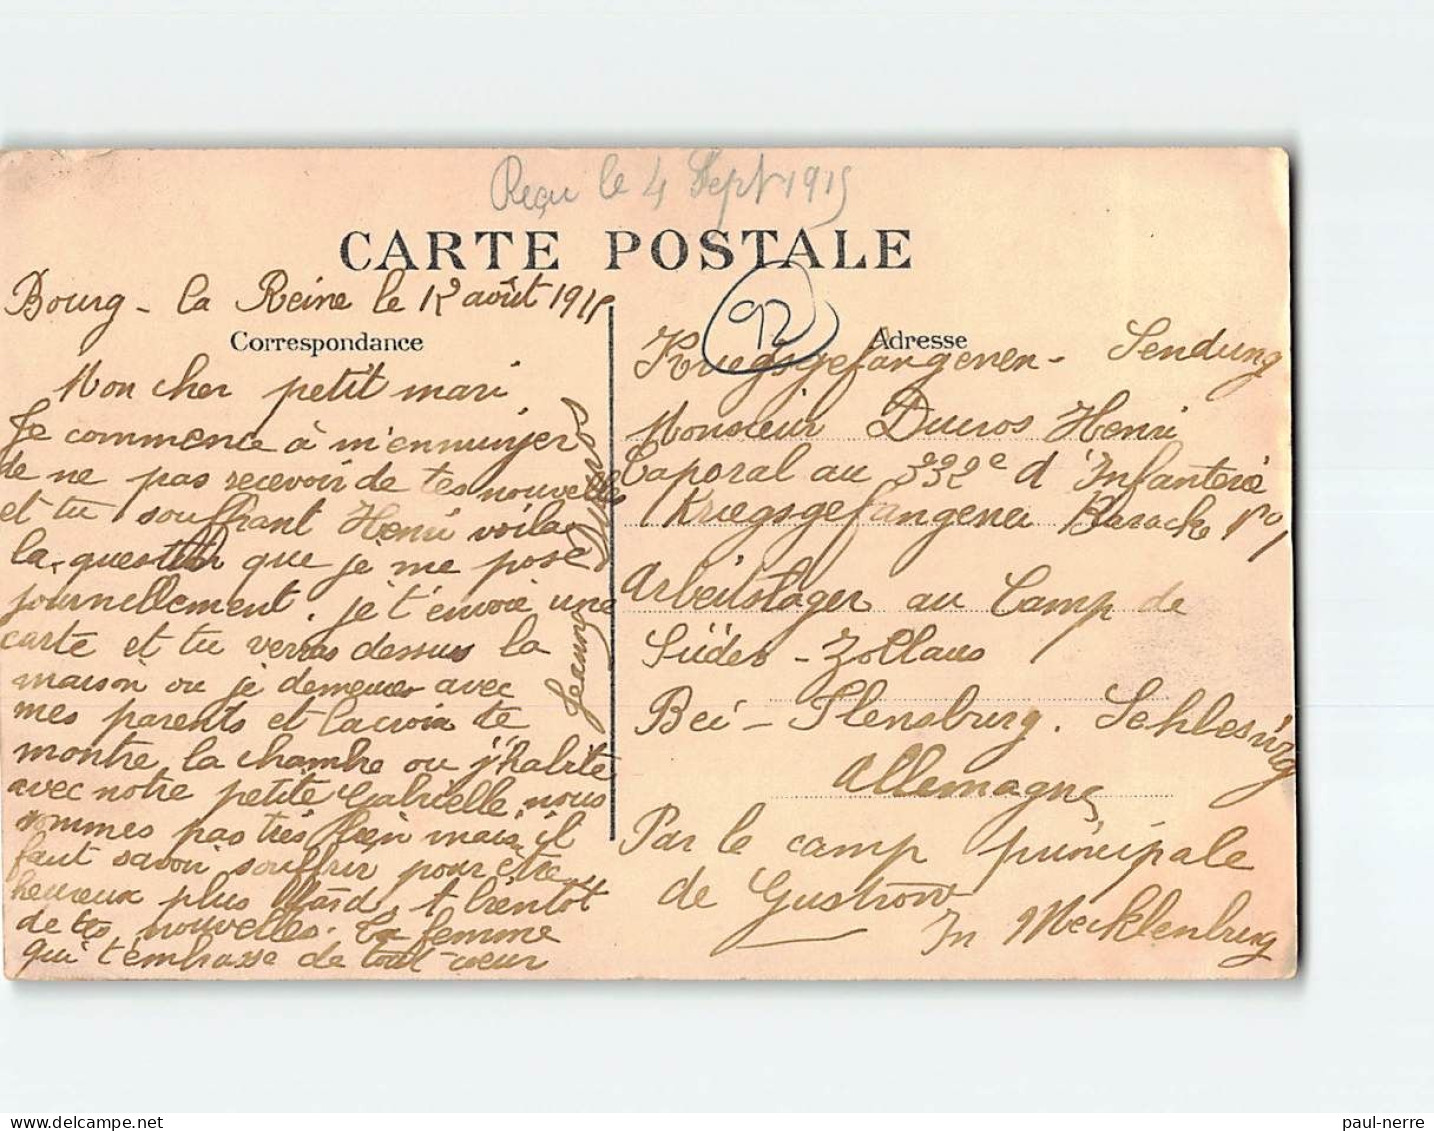 Reçu le 4 Sept 1915
CARTE POSTALE
Bourg-la Reine le 12 août 1915
Correspondance
Mon cher petit mari
Je commence à m'ennuyer
de ne pas recevoir de tes nouvelles
et tu souffrant Henri voila
la question que je me pose
journellement. je t'envoie une
carte et tu verras dessus la
maison ou je demeure avec
mes parents et la croix te
montre la chambre ou j'habite
avec notre petite Gabrielle, nous
sommes pas très bien mais il
faut savoir souffrir pour être
heureux plus tard, A bientôt
de tes nouvelles. Ta femme
qui t'embrasse de tout cœur
Jeanne Ducros
92
Adresse
Kriegsgefangenen - Sendung
Monsieur Ducros Henri
Caporal au 332e d'Infanterie
Kriegsgefangener Barack No 1
Arbeitslager au Camp de
Süder-Zollaus
Bei-Flensburg. Schleswig
Allemagne
Par le camp principale
de Gustrow
In Mecklenburg
paul-nerre